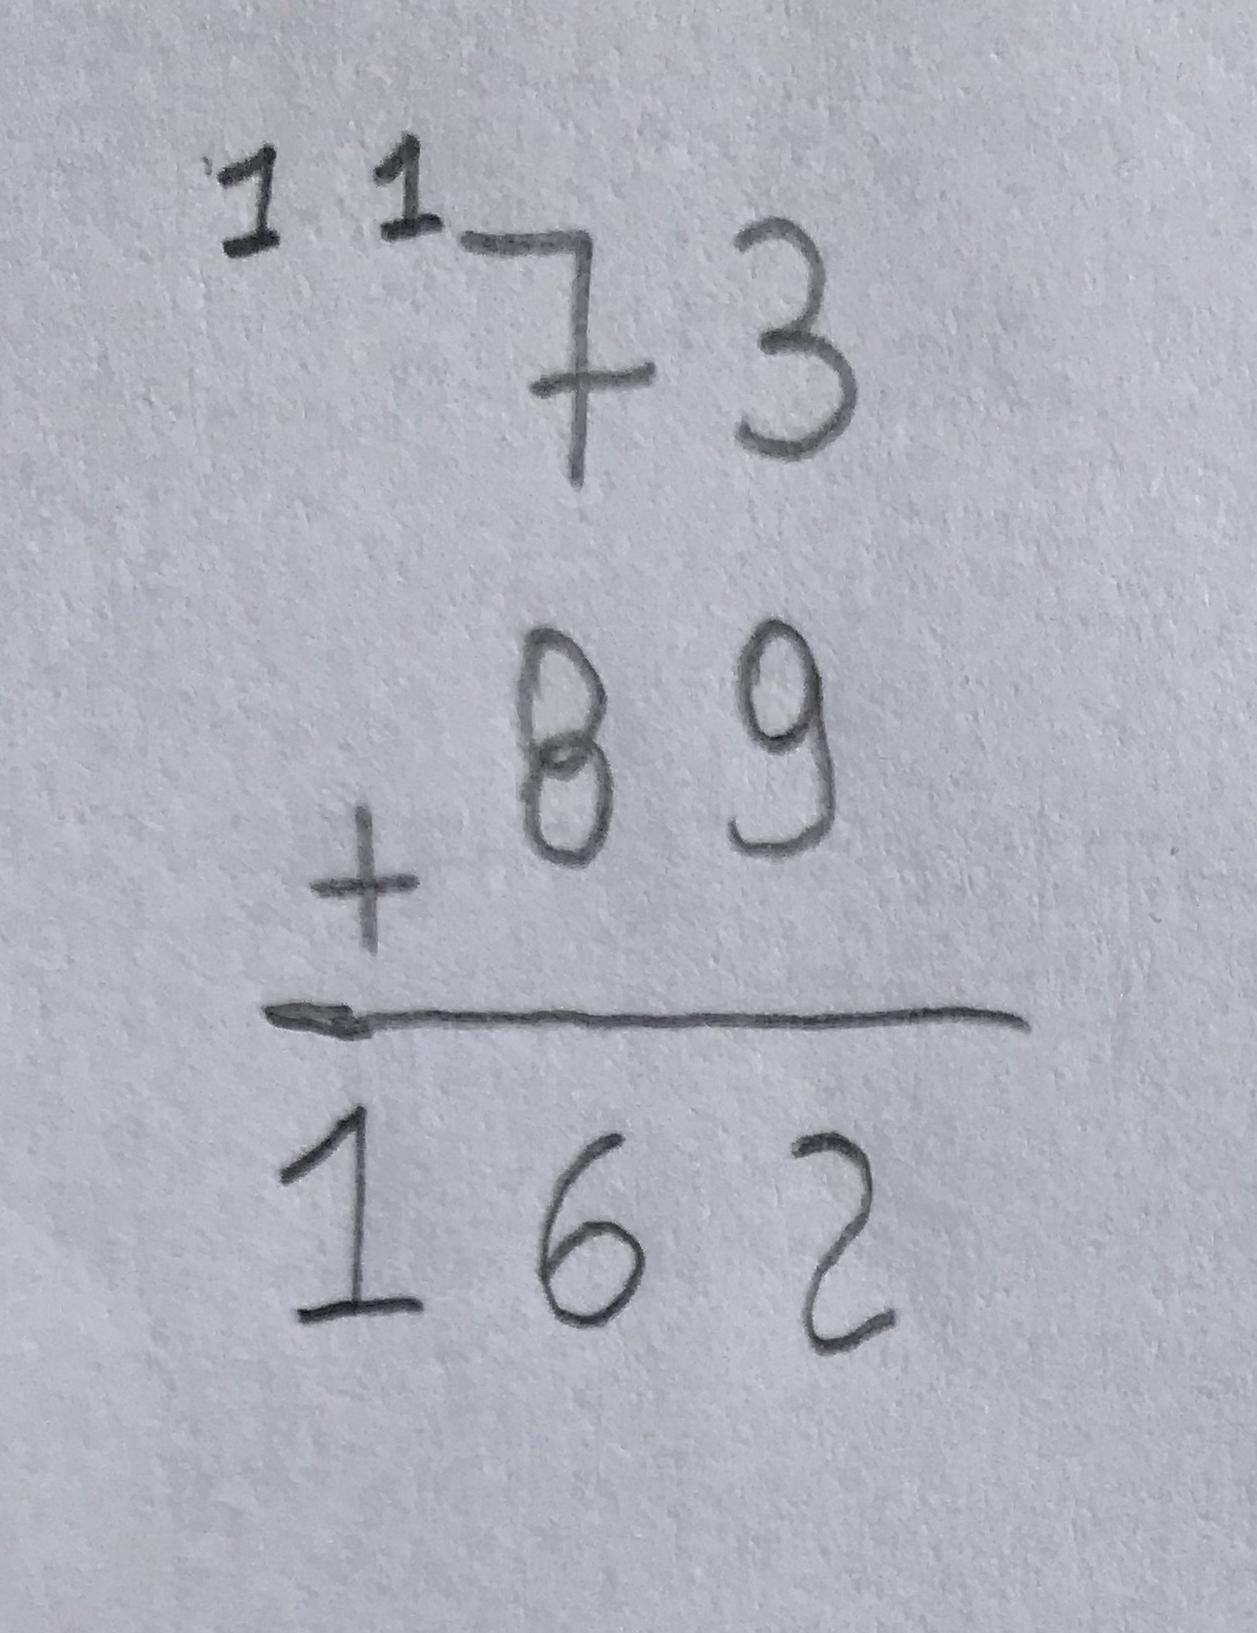 1 1
73
+ 89
162